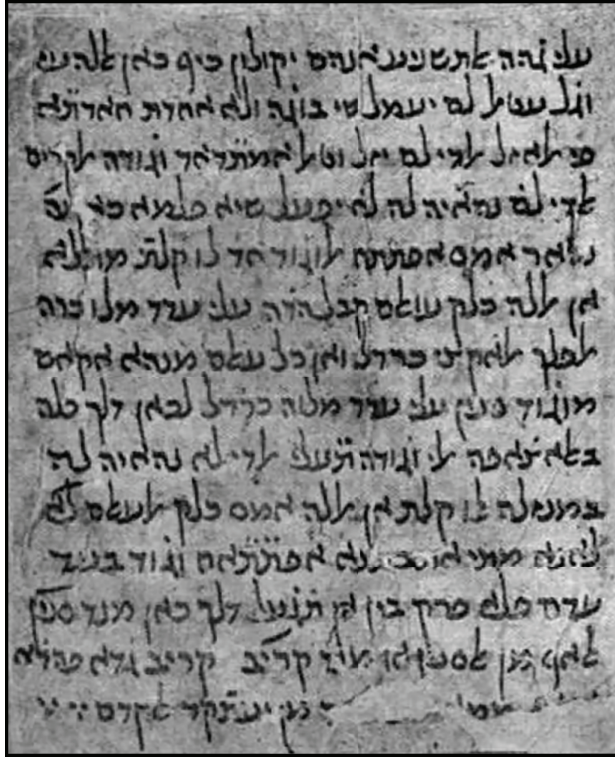 עלי גהה אלתשניע אנהם יקולון כיף כאן אללה עז
וגל עטאל לם יעמל שי בוגה ולא אחדת חאדתא
פי אלאזל אלדי לם יזל וטול אמתדאד וגודה אלקדים
אלדי לא נהאיה לה לא יפעל שיא פלמא כאן
נהאר אמס אפתתח אלוגוד אד לו קלת מתלא
אן אללה כלק עואלם קבל הדה עלי עדד מלו כרה
אלפלך אלאקצי כרדל ואן כל עאלם מנהא אקאם
מוגוד סנין עלי עדד מלוה כרדל לכאן דלך כלה
באלאצאפה אלי וגודה תעאלי אלדי לא נהאיה לה
במנזלה לו קלת אן אללה אמס כלק אלעאלם
לאנא מתי אפתתאח וגוד בעד
עדם פלא פרק בין אן תגעל דלך כאן מנד
אלאף מן אלסנין או מנד קריב קריב גדא פהדא
מן יעתקד אלקדם